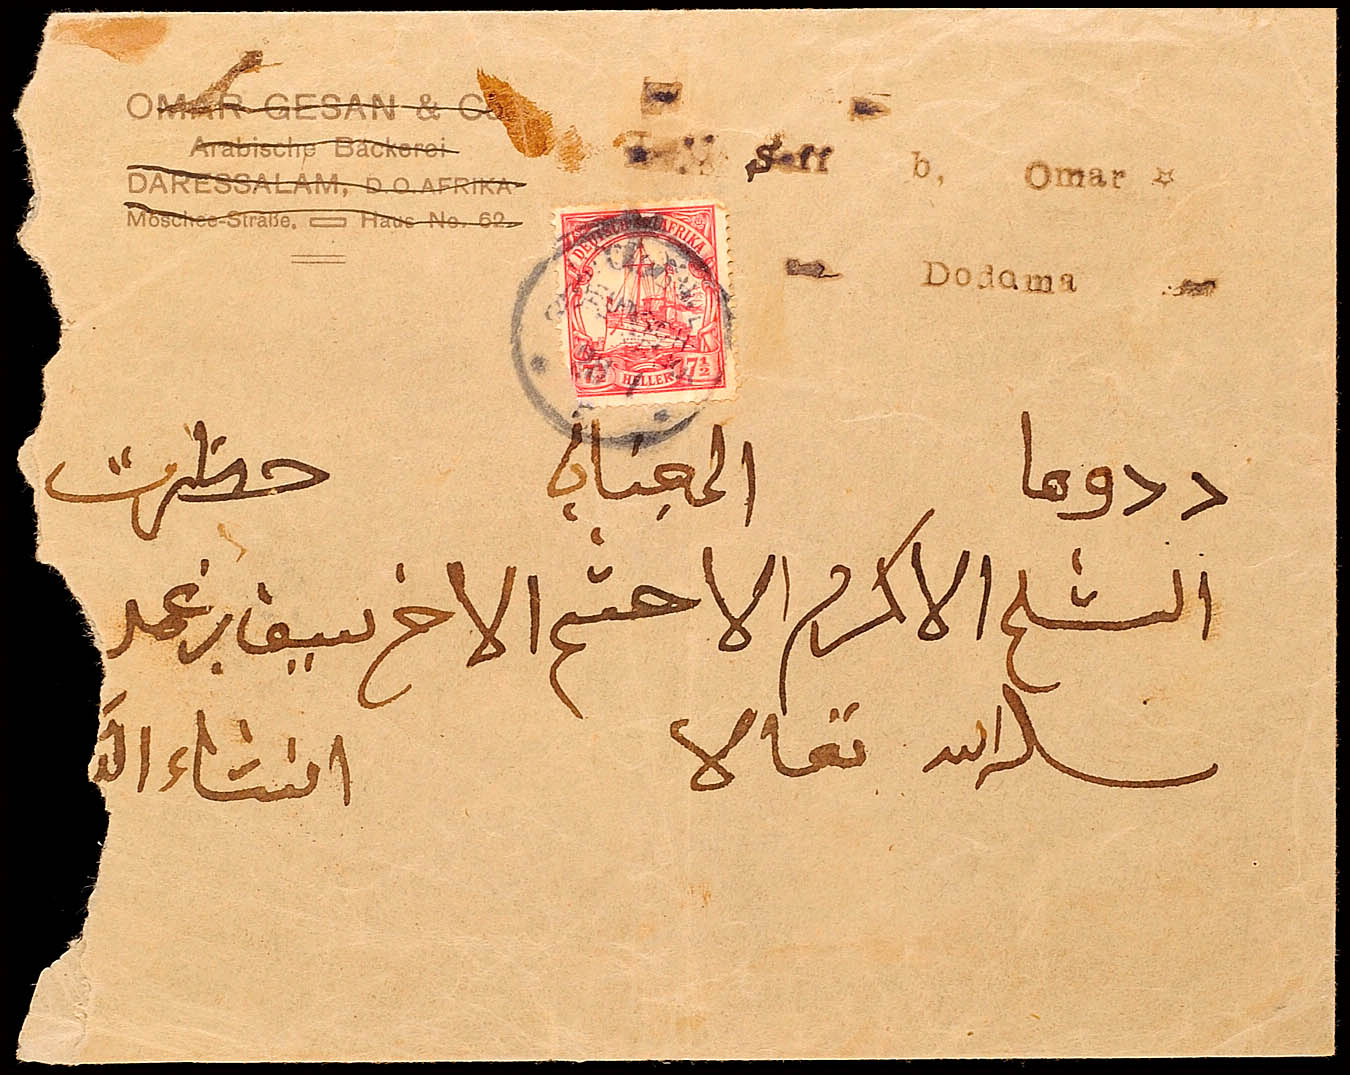 OMAR GESAN & Co.
Arabische Bäckerei
DARESSALAM, D.O.AFRIKA
Moschee-Straße, Haus No. 62.
Seff b, Omar
Dodoma
DEUSCH-OSTAFRIKA
7½ HELLER 7½
ددوما الجناب حظرت
الشيخ الاكرم الاحشم الاخ سيف بن عمر
سلمه الله تعالا انشاء الله